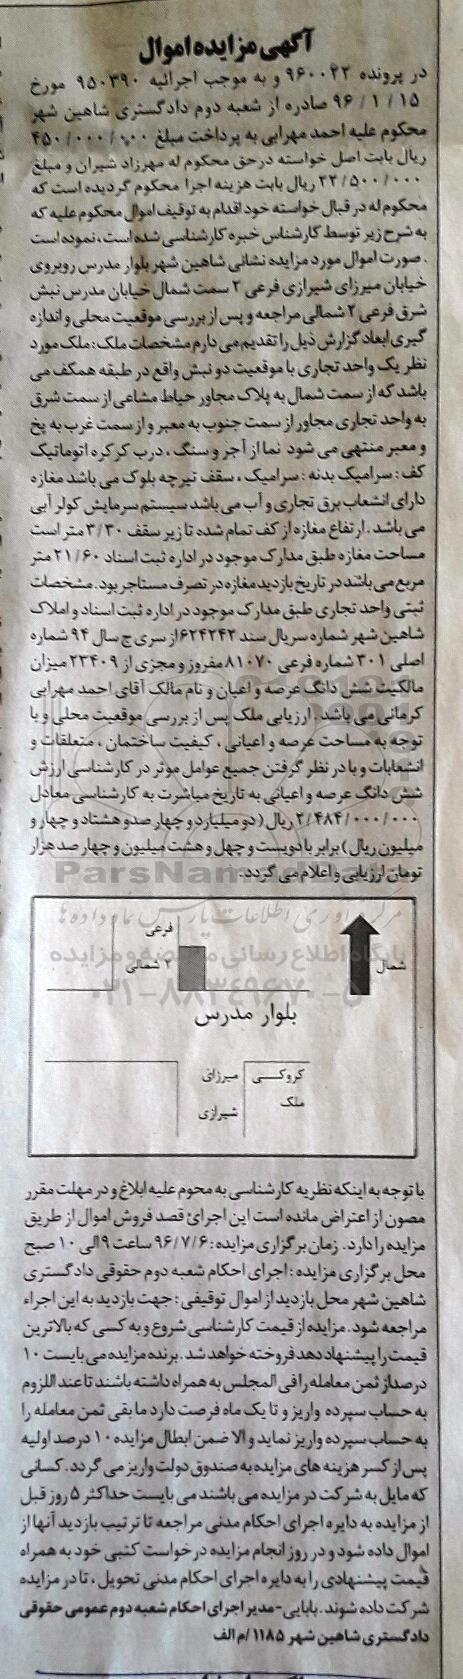 آگهی مزایده اموال
در پرونده ۹۶۰۰۲۲ و به موجب اجرائیه ۹۵۰۳۹۰ مورخ
۹۶/۱/۱۵ صادره از شعبه دوم دادگستری شاهین شهر
محکوم علیه احمد مهرابی به پرداخت مبلغ ۴۵۰/۰۰۰/۰۰۰
ریال بابت اصل خواسته درحق محکوم له مهرزاد شیران و مبلغ
۲۲/۵۰۰/۰۰۰ ریال بابت هزینه اجرا محکوم گردیده است که
محکوم له در قبال خواسته خود اقدام به توقیف اموال محکوم علیه که
به شرح زیر توسط کارشناس خبره کارشناسی شده است، نموده است
. صورت اموال مورد مزایده نشانی شاهین شهر بلوار مدرس روبروی
خیابان میرزای شیرازی فرعی ۲ سمت شمال خیابان مدرس نبش
شرق فرعی ۲ شمالی مراجعه و پس از بررسی موقعیت محلی و اندازه
گیری ابعاد گزارش ذیل را تقدیم می دارم مشخصات ملک: ملک مورد
نظر یک واحد تجاری با موقعیت دو نبش واقع در طبقه همکف می
باشد که از سمت شمال به پلاک مجاور حیاط مشاعی از سمت شرق
به واحد تجاری مجاور از سمت جنوب به معبر و از سمت غرب به پخ
و معبر منتهی می شود نما از آجر و سنگ ، درب کرکره اتوماتیک
کف : سرامیک بدنه : سرامیک ، سقف تیرچه بلوک می باشد مغازه
دارای انشعاب برق تجاری و آب می باشد سیستم سرمایش کولر آبی
می باشد . ارتفاع مغازه از کف تمام شده تا زیر سقف ۳/۳۰ متر است
مساحت مغازه طبق مدارک موجود در اداره ثبت اسناد ۲۱/۶۰ متر
مربع می باشد در تاریخ بازدید مغازه در تصرف مستاجر بود . مشخصات
ثبتی واحد تجاری طبق مدارک موجود در اداره ثبت اسناد و املاک
شاهین شهر شماره سریال سند ۶۲۴۲۴۲ از سری ج سال ۹۴ شماره
اصلی ۳۰۱ شماره فرعی ۸۱۰۷۰ مفروز و مجزی از ۲۳۴۰۹ میزان
مالکیت شش دانگ عرصه و اعیان و نام مالک آقای احمد مهرابی
کرمانی می باشد . ارزیابی ملک پس از بررسی موقعیت محلی و با
توجه به مساحت عرصه و اعیانی ، کیفیت ساختمان ، متعلقات و
انشعابات و با در نظر گرفتن جمیع عوامل موثر در کارشناسی ارزش
شش دانگ عرصه و اعیانی به تاریخ مباشرت به کارشناسی معادل
۲/۴۸۴/۰۰۰/۰۰۰ ریال ( دو میلیارد و چهار صد و هشتاد و چهار و
میلیون ریال ) برابر با دویست و چهل و هشت میلیون و چهار صد هزار
تومان ارزیابی و اعلام می گردد.
ParsNamadData
مرکز فرآوری اطلاعات پارس نماد داده ها
پایگاه اطلاع رسانی مناقصه و مزایده
۰۲۱-۸۸۳۴۹۶۷۰-۵
فرعی
۲ شمالی
شمال
بلوار مدرس
کروکی
ملک
میرزای
شیرازی
با توجه به اینکه نظریه کارشناسی به محوم علیه ابلاغ و در مهلت مقرر
مصون از اعتراض مانده است این اجرائ قصد فروش اموال از طریق
مزایده را دارد . زمان برگزاری مزایده : ۹۶/۷/۶ ساعت ۹ الی ۱۰ صبح
محل برگزاری مزایده : اجرای احکام شعبه دوم حقوقی دادگستری
شاهین شهر محل بازدید از اموال توقیفی : جهت بازدید به این اجراء
مراجعه شود . مزایده از قیمت کارشناسی شروع و به کسی که بالاترین
قیمت را پیشنهاد دهد فروخته خواهد شد . برنده مزایده می بایست ۱۰
درصد از ثمن معامله را فی المجلس به همراه داشته باشند تا عند اللزوم
به حساب سپرده واریز و تا یک ماه فرصت دارد ما بقی ثمن معامله را
به حساب سپرده واریز نماید و الا ضمن ابطال مزایده ۱۰ درصد اولیه
پس از کسر هزینه های مزایده به صندوق دولت واریز می گردد . کسانی
که مایل به شرکت در مزایده می باشند می بایست حداکثر ۵ روز قبل
از مزایده به دایره اجرای احکام مدنی مراجعه تا ترتیب بازدید آنها از
اموال داده شود و در روز انجام مزایده درخواست کتبی خود به همراه
قیمت پیشنهادی را به دایره اجرای احکام مدنی تحویل ، تا در مزایده
شرکت داده شوند . بابایی-مدیر اجرای احکام شعبه دوم عمومی حقوقی
دادگستری شاهین شهر ۱۱۸۵ /م الف